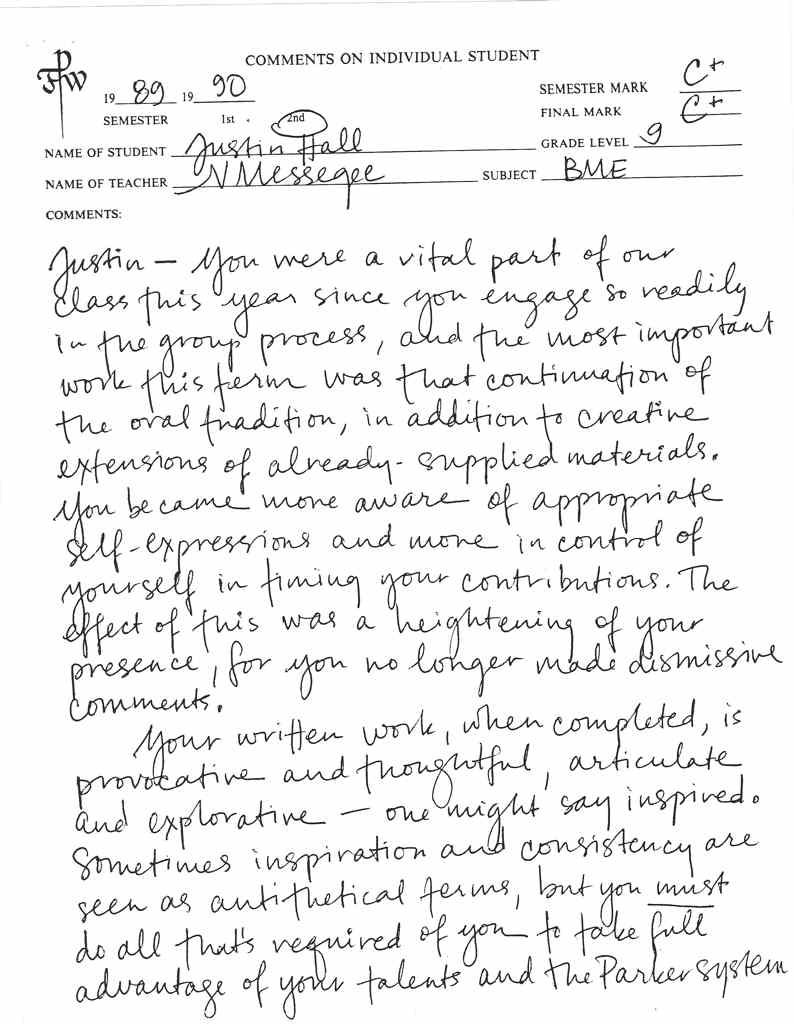 FPW
COMMENTS ON INDIVIDUAL STUDENT
19 89 19 90
SEMESTER MARK C+
FINAL MARK C+
SEMESTER 1st. 2nd
NAME OF STUDENT Justin Hall GRADE LEVEL 9
NAME OF TEACHER N Messegee SUBJECT BME
COMMENTS:
Justin – You were a vital part of our
class this year since you engage so readily
in the group process, and the most important
work this term was that continuation of
the oral tradition, in addition to creative
extensions of already-supplied materials.
You became more aware of appropriate
self-expressions and more in control of
yourself in timing your contributions. The
effect of this was a heightening of your
presence, for you no longer made dismissive
comments.
Your written work, when completed, is
provocative and thoughtful, articulate
and explorative – one might say inspired.
Sometimes inspiration and consistency are
seen as antithetical terms, but you must
do all that's required of you to take full
advantage of your talents and the Parker system